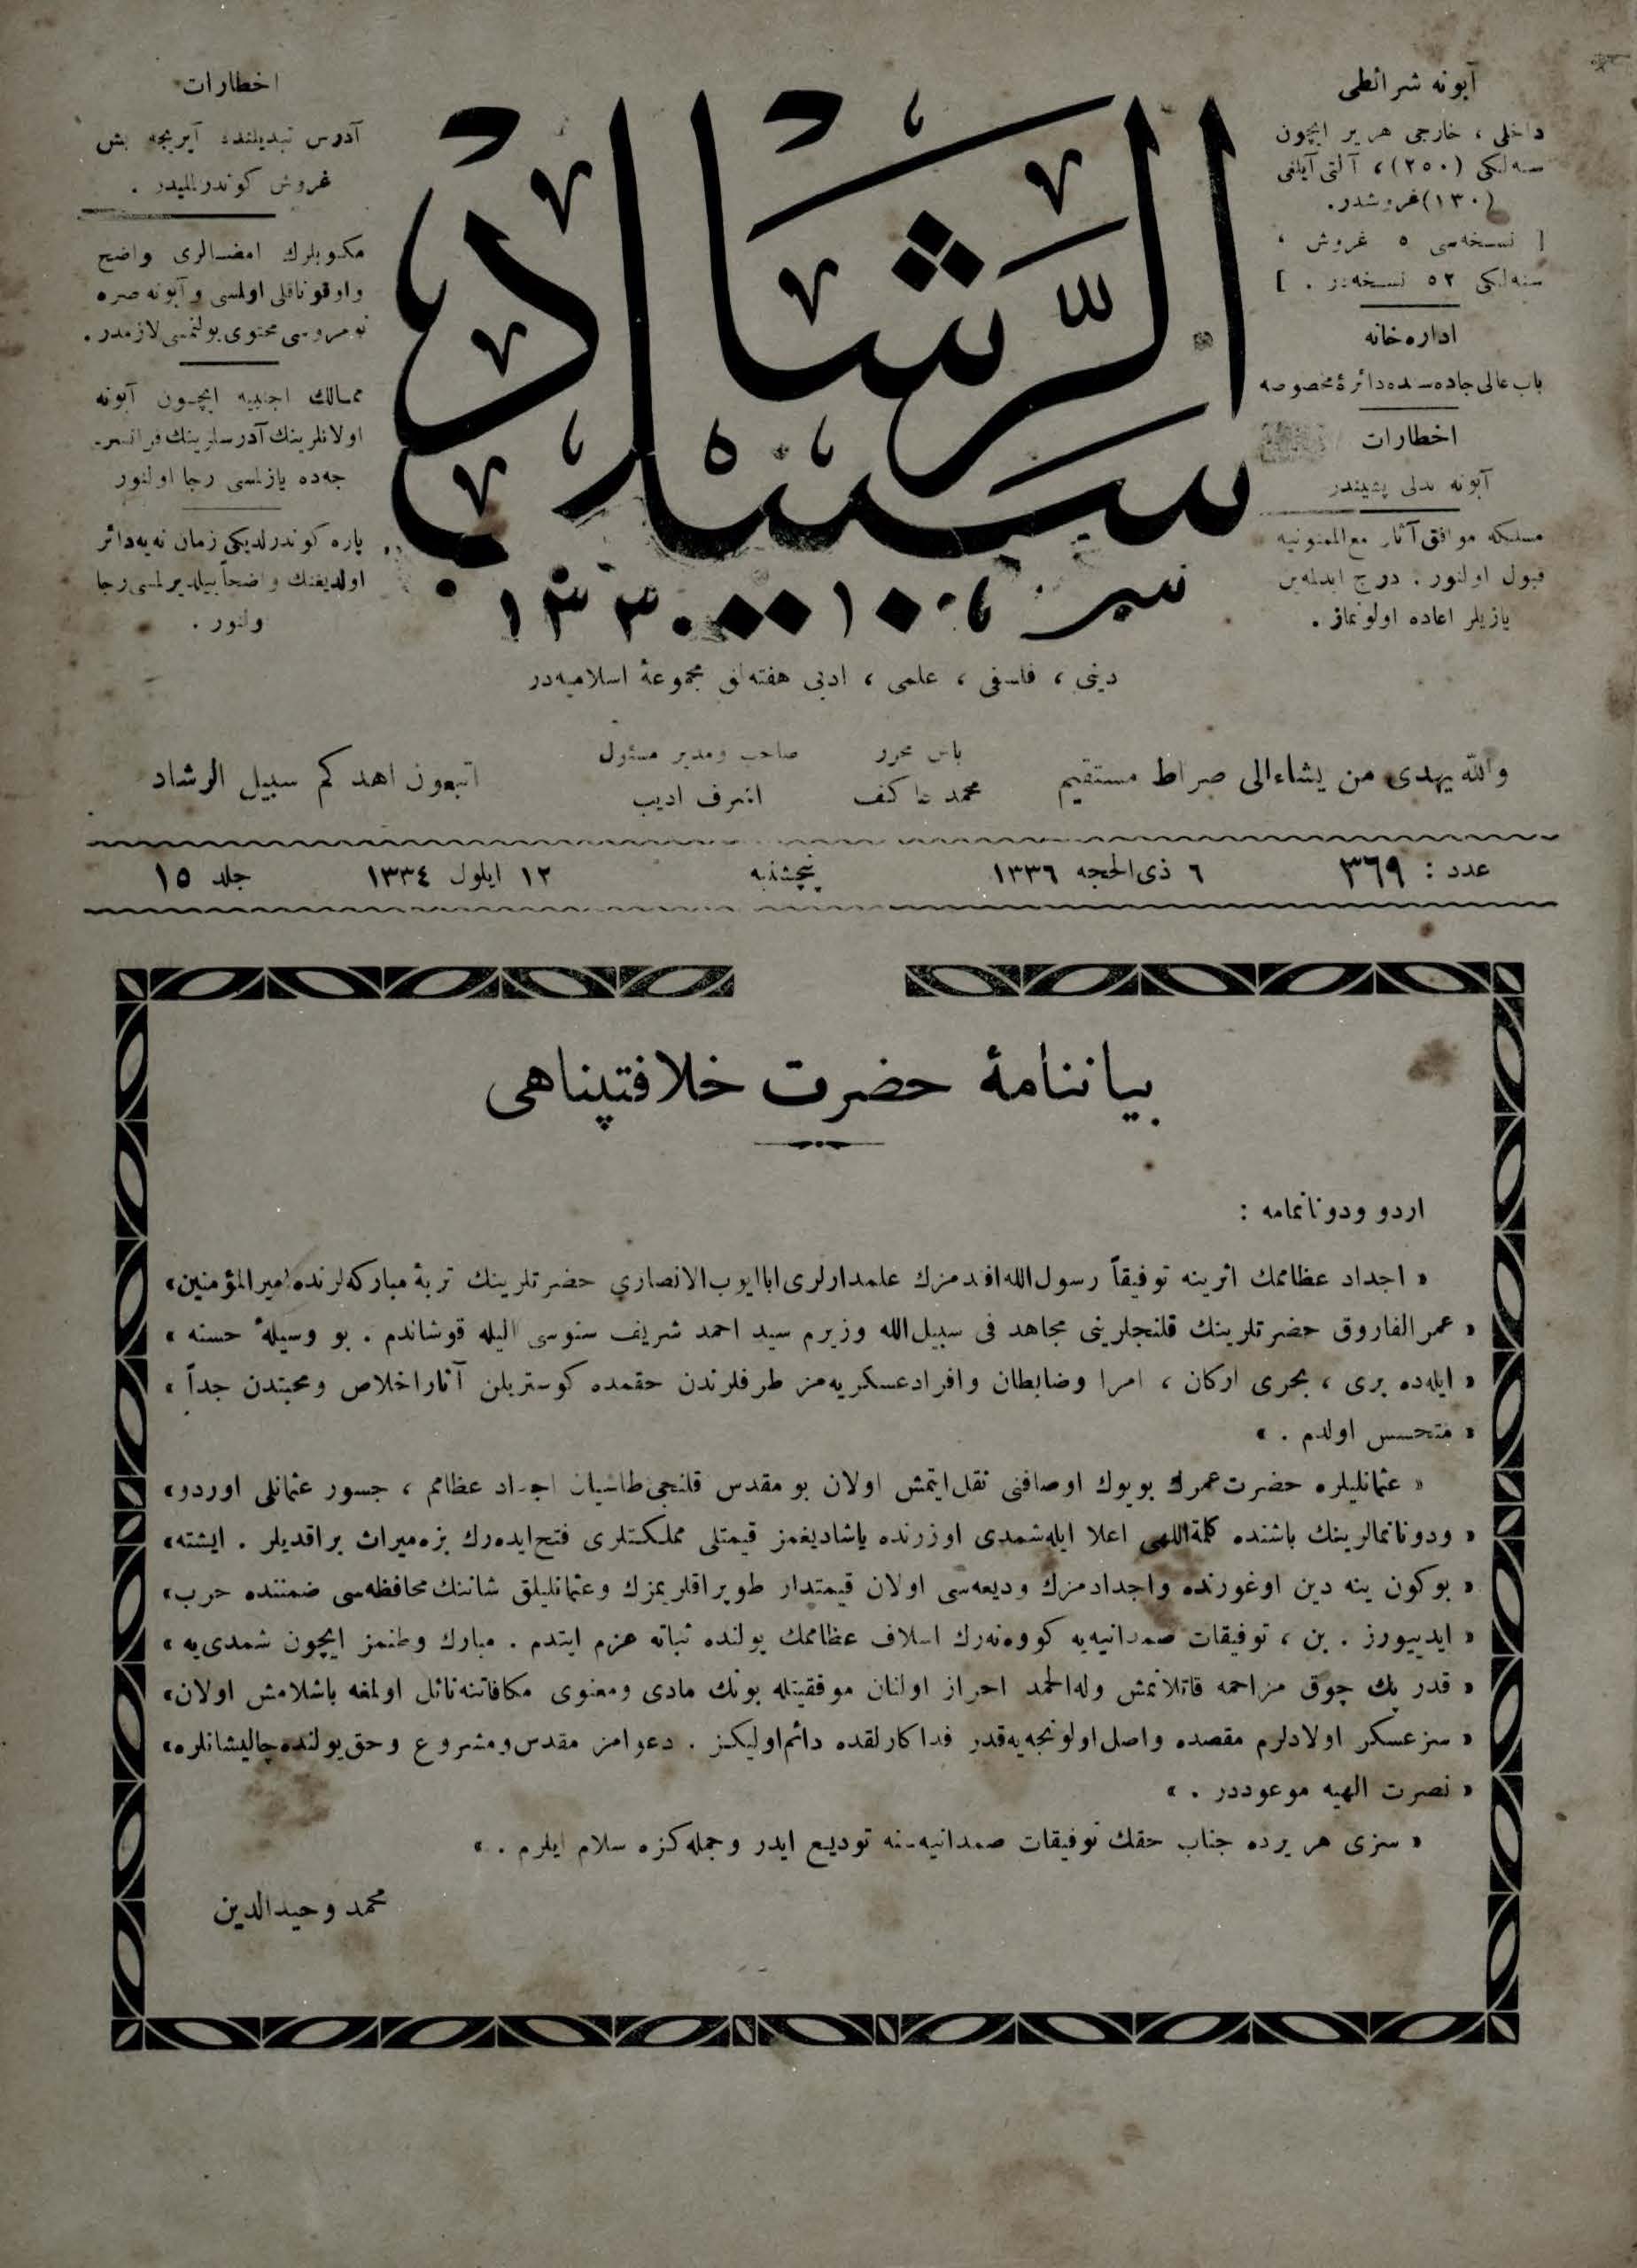 آبونه شرائطی
داخلی ، خارجی هر یر ایچون
سنه‌لكی (٢٥٠) ، آلتی آیلغی
(١٣٠) غروشدر.
[ نسخه‌سی ٥ غروش ،
سنه‌لكی ٥٢ نسخه‌در . ]
اداره‌خانه
باب عالی جاده‌سنده دائرۀ مخصوصه
اخطارات
آبونه بدلی پشیندر
مسلكه موافق آثار مع‌الممنونیه
قبول اولنور . درج ایدلمه‌ین
یازیلر اعاده اولونماز .
سبیل الرشاد
١٣٣٠
اخطارات
آدرس تبدیلنده آیریجه بش
غروش كوندرلملیدر .
مكتوبلرك امضالری واضح
واوقوناقلی اولمسی و آبونه صره
نومروسی محتوی بولنمسی لازمدر .
ممالك اجنبیه ایچون آبونه
اولانلرینك آدرسلرینك فرانسز-
جه‌ده یازلمسی رجا اولنور
پاره كوندرلدیكی زمان نه‌یه دائر
اولدیغنك واضحاً بیلدیرلمسی رجا
ولنور .
دینی ، فلسفی ، علمی ، ادبی هفته‌لق مجموعۀ اسلامیه‌در
والله یهدی من یشاء الی صراط مستقیم
باش محرر
محمد عاكف
صاحب ومدیر مسئول
اشرف ادیب
اتبعون اهدكم سبیل الرشاد
عدد : ٣٦٩
٦ ذی‌الحجه ١٣٣٦
پنجشنبه
١٢ ایلول ١٣٣٤
جلد ١٥
بیاننامۀ حضرت خلافتپناهی
اردو ودونانمامه :
« اجداد عظاممك اثرینه توفیقاً رسول‌الله افندمزك علمدارلری ابا ایوب الانصاری حضرتلرینك تربۀ مباركه‌لرنده امیرالمؤمنین»
« عمر الفاروق حضرتلرینك قلنجلرینی مجاهد فی سبیل‌الله وزیرم سید احمد شریف سنوسی الیله قوشاندم . بو وسیلۀ حسنه »
« ایله‌ده بری ، بحری اركان ، امرا وضابطان وافراد عسكریه‌مز طرفلرندن حقمده كوستریلن آثار اخلاص ومحبتدن جداً »
« متحسس اولدم . »
« عثمانلیلره حضرت عمرك بویوك اوصافنی نقل ایتمش اولان بو مقدس قلنجی طاشیان اجداد عظامم ، جسور عثمانلی اوردو»
« ودونانمالرینك باشنده كلمة‌اللهی اعلا ایله شمدی اوزرنده یاشادیغمز قیمتلی مملكتلری فتح ایده‌رك بزه میراث براقدیلر . ایشته»
« بوكون ینه دین اوغورنده واجدادمزك ودیعه‌سی اولان قیمتدار طوپراقلریمزك وعثمانلیلق شاننك محافظه‌سی ضمننده حرب»
« ایدییورز . بن ، توفیقات صمدانیه‌یه كووه‌نه‌رك اسلاف عظاممك یولنده ثباته عزم ایتدم . مبارك وطنمز ایچون شمدی‌یه »
« قدر پك چوق مزاحمه قاتلانمش وله‌الحمد احراز اولنان موفقیتله بونك مادی ومعنوی مكافاتنه نائل اولمغه باشلامش اولان»
« سز عسكر اولادلرم مقصده واصل اولونجه‌یه قدر فداكارلقده دائم اولیكز . دعوامز مقدس ومشروع وحق یولنده چالیشانلره»
« نصرت الهیه موعوددر . »
« سزی هر یرده جناب حقك توفیقات صمدانیه‌سنه تودیع ایدر وجمله‌كزه سلام ایلرم . »
محمد وحیدالدین